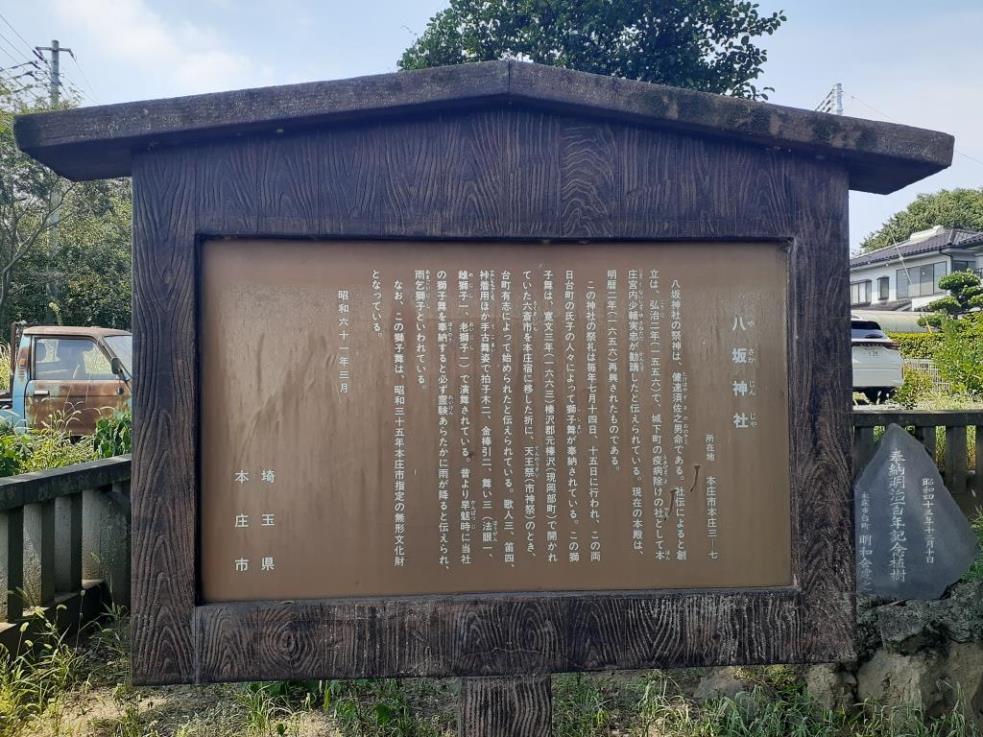 八坂神社
所在地 本庄市本庄三―七
八坂神社の祭神は、健速須佐之男命である。社伝によると創
立は、弘治二年(一五五六)で、城下町の疫病除けの社として本
庄宮内少輔実忠が勧請したと伝えられている。現在の本殿は、
明暦二年(一六五六)再興されたものである。
この神社の祭礼は毎年七月十四日、十五日に行われ、この両
日台町の氏子の人々によって獅子舞が奉納されている。この獅
子舞は、寛文三年(一六六三)榛沢郡元榛沢(現岡部町)で開かれ
ていた六斎市を本庄宿に移した折に、天王祭(市神祭)のとき、
台町有志によって始められたと伝えられている。歌人三、笛四、
裃着用ほか手古舞姿で拍子木二、金棒引二、舞い三(法眼一、
雄獅子一、老獅子一)で演舞されている。昔より旱魃時に当社
の獅子舞を奉納すると必ず霊験あらたかに雨が降ると伝えられ、
雨乞獅子といわれている。
なお、この獅子舞は、昭和三十五年本庄市指定の無形文化財
となっている。
昭和六十一年三月
埼玉県
本庄市
昭和四十三年十二月十日
奉納明治百年記念植樹